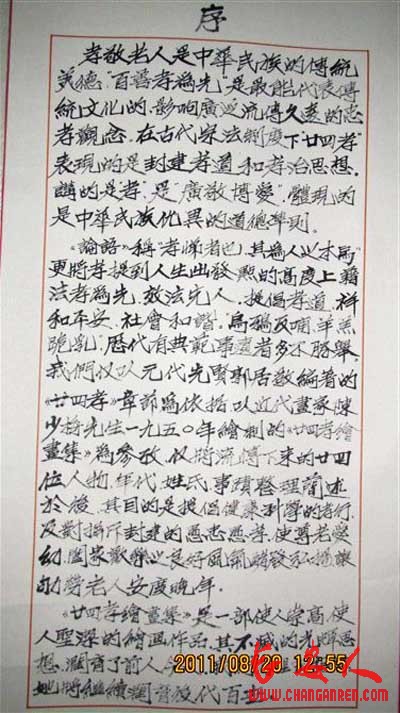 序
孝敬老人是中華民族的傳統
美德，"百善孝為先"是最能代表傳
統文化的，影響廣泛流傳久遠的忠
孝觀念，在古代宗法制度下"廿四孝"
表現的是封建孝道和孝治思想，
講的是孝，是"廣敬博愛"，體現的
是中華民族優異的道德準則。
《論語》稱"孝悌者也，其為人之本歟"
更將孝提到人生出發點的高度上籍
法孝為先，效法先人，提倡孝道，祥
和平安，社會和諧，烏鴉反哺，羊羔
跪乳，歷代有典範事蹟者多不勝舉，
我們僅以元代先賢郭居敬編著的
《廿四孝》章節為依據以近代畫家陳
少梅先生一九五〇年繪制的《廿四孝繪
畫集》為參考，僅將流傳下來的廿四
位人物，年代姓氏事蹟整理簡述
於後，其目的是提倡健康科學的孝行，
及對掃斥封建的愚忠愚孝，使尊老愛
幼，闔家歡樂之良好風氣
勞老人安度晚年。
《廿四孝繪畫集》是一部使人崇高，使
人聖潔的繪画作品，其不滅的光輝思
想，潤育了前人
她將繼續潤育後代百
2011/08/20 12:55
長安人
WWW.CHANGANREN.COM